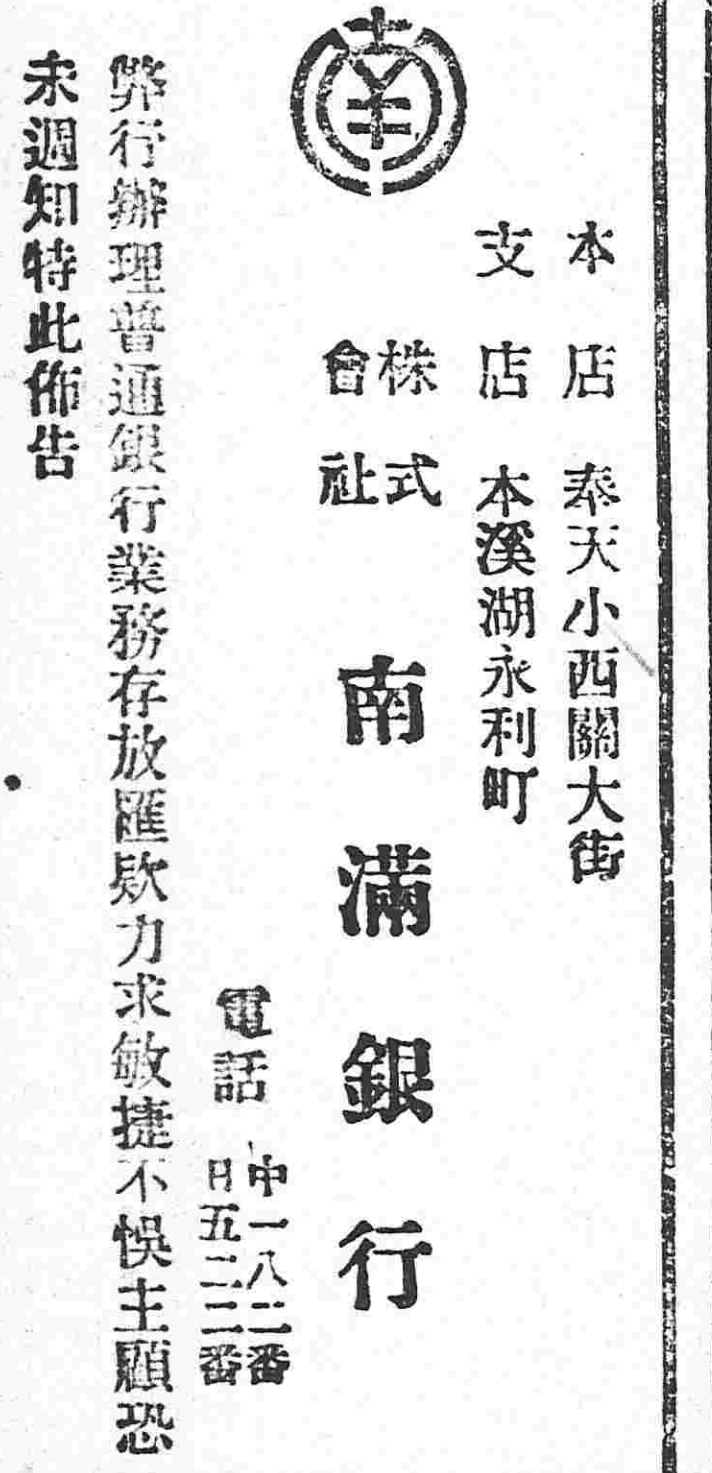 本店　奉天小西關大街
支店　本溪湖永利町
株式
會社
南滿銀行
電話
中一八二番
日五二二番
弊行辦理普通銀行業務存放匯欵力求敏捷不悞主顧恐
未週知特此佈告